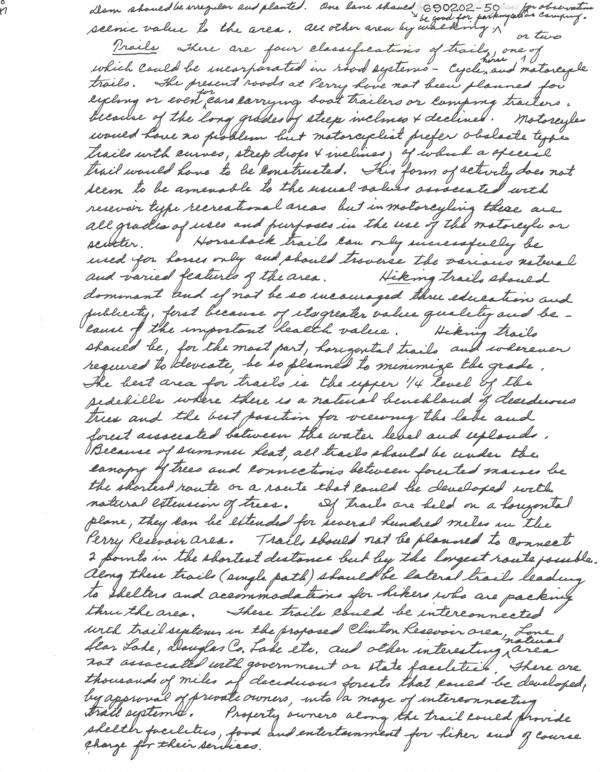 Dam should be irregular and planted. One lane should 690202-50 for observation
be good for parking or as camping.
scenic value to the area. All other area by walking
or two
Trails There are four classifications of trails, one of
which could be incorporated in road systems - Cycle, horse and motorcycle
trails. The present roads at Perry have not been planned for
cycling or even for cars carrying boat trailers or camping trailers,
because of the long grades of steep inclines & declines. Motorcycles
would have no problem but motorcyclist prefer obstacle type
trails with curves, steep drops & inclines, of which a special
trail would have to be constructed. This form of activity does not
seem to be amenable to the usual values associated with
resevoir type recreational areas but in motorcyling there are
all grades of uses and purposes in the use of the motorcyle or
scooter. Horseback trails can only successfully be
used for horses only and should traverse the various natural
and varied features of the area. Hiking trails should
dominant and if not be so incouraged thru education and
publicity, first because of its greater value quality and be-
cause of the important health value. Hiking trails
should be, for the most part, horizontal trails, and wherever
required to deviate, be so planned to minimize the grade.
The best area for trails is the upper 1/4 level of the
sidehills where there is a natural benchland of deciduous
trees and the best position for viewing the lake and
forest associated between the water level and uplands.
Because of summer heat, all trails should be under the
canopy of trees and connections between forested masses be
the shortest route or a route that could be developed with
natural extension of trees. If trails are held on a horizontal
plane, they can be extended for several hundred miles in the
Perry Resevoir area. Trails should not be planned to connect
2 points in the shortest distance but by the longest route possible.
Along these trails (single path) should be lateral trails leading
to shelters and accommodations for hikers who are packing
thru the area. These trails could be interconnected
with trail systems in the proposed Clinton Resevoir area, Lone
Star Lake, Douglas Co. Lake etc. and other interesting natural area
not associated with government or state facilities. There are
thousands of miles of deciduous forests that could be developed,
by approval of private owners, into a maze of interconnecting
trail systems. Property owners along the trail could provide
shelter facilities, food and entertainment for hiker and of course
charge for their services.